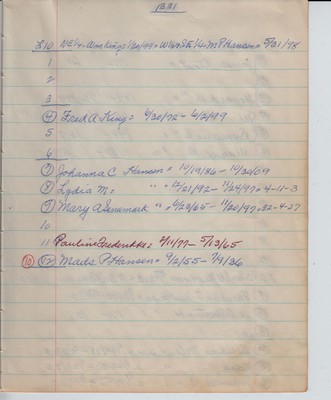 BB1
L10 NE¼ = Workings 1/20/99 = W½ of SE¼ = M P Hansen = 5/31/98
1
2
3
4 Fred A King = 6/30/72 - 4/2/99
5
6
7 Johanna C Hansen = 10/19/86 - 10/30/09
8 Lydia M = " " 12/21/92 - 11/24/97 = 4-11-3
9 Mary A Denmark " = 6/23/65 - 11/20/97 = 32-4-27
10
11 Pauline Fredericks = 2/11/77 - 5/13/65
10 12 Mads P Hansen = 9/2/55 - 7/9/36